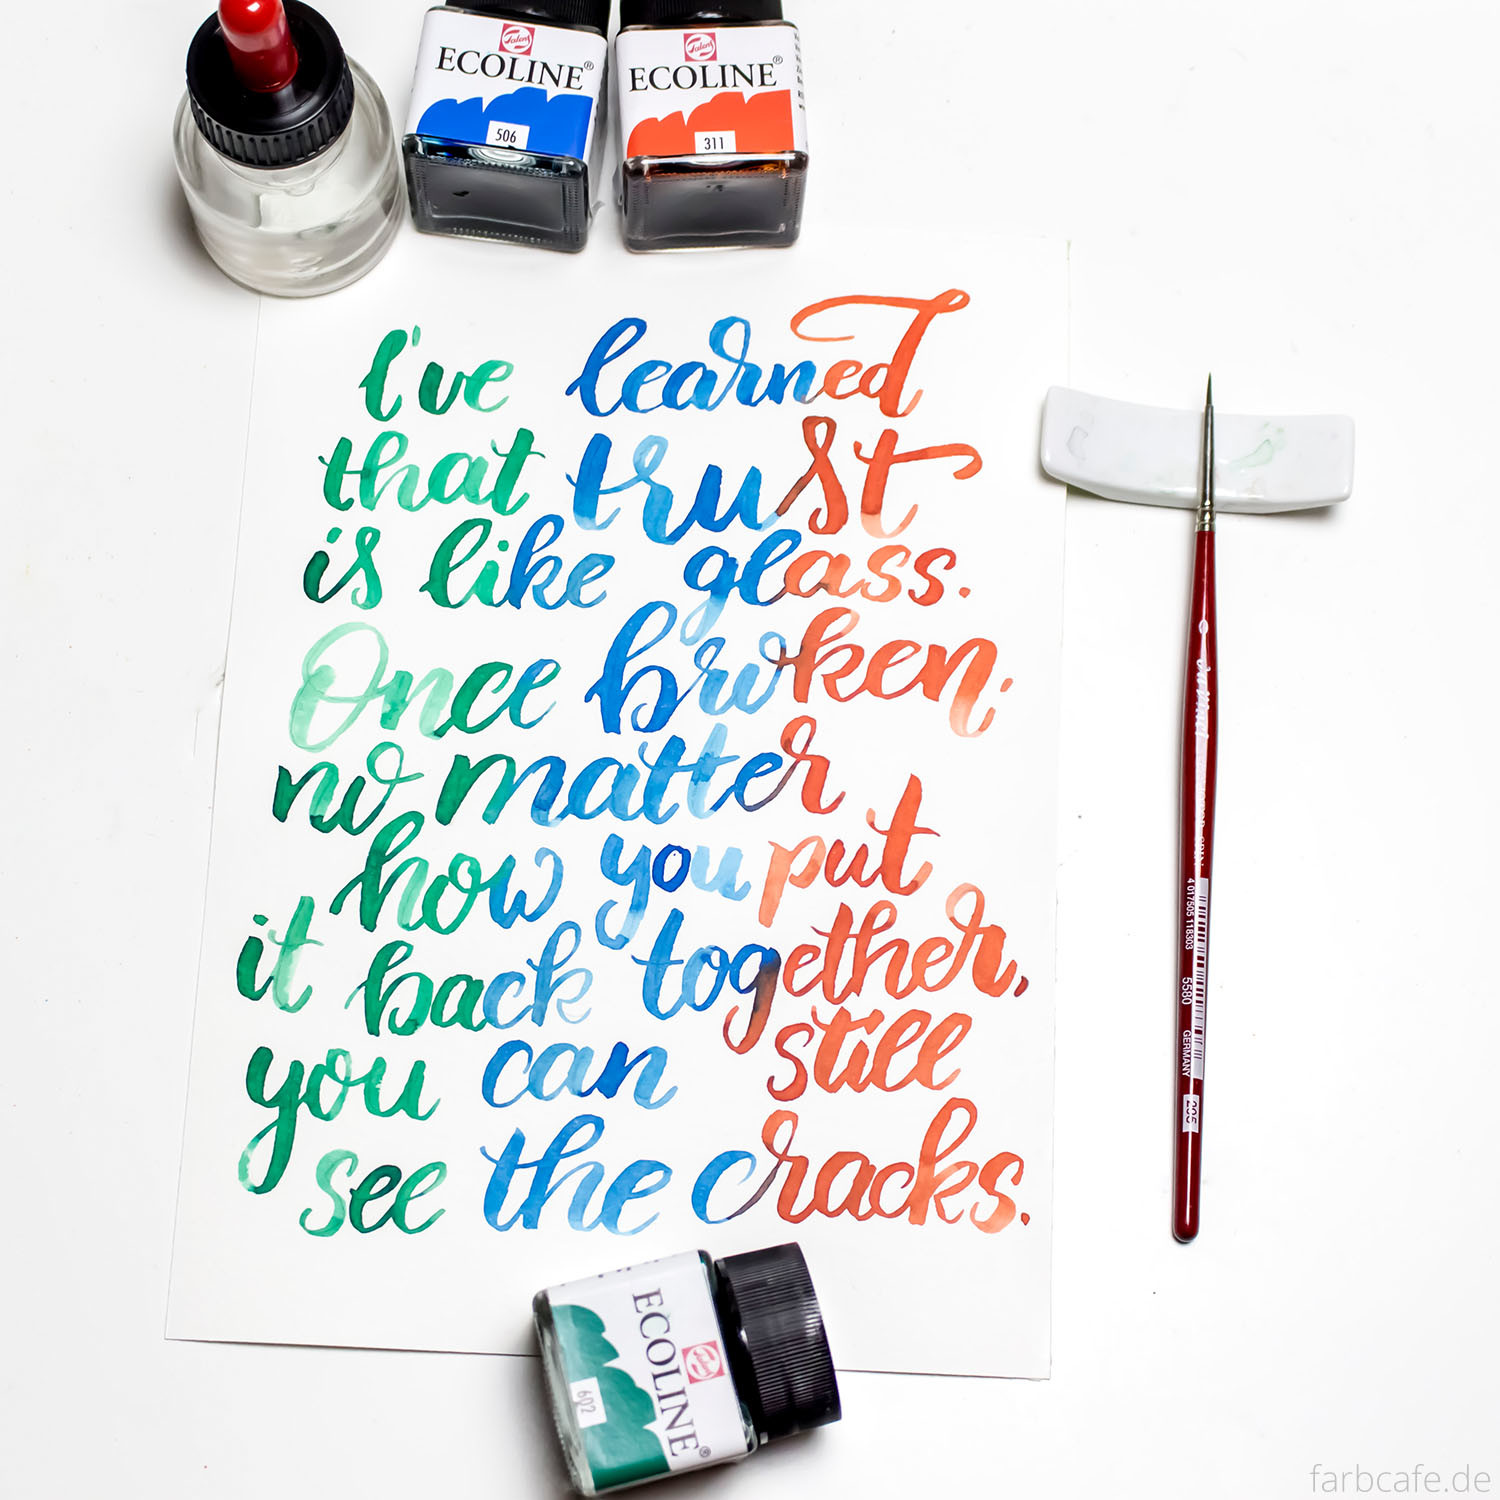 Talens
ECOLINE®
506
Talens
ECOLINE®
311
I've learned
that trust
is like glass.
Once broken;
no matter
how you put
it back together,
you can still
see the cracks.
da Vinci
4 017505 118303
5580
GERMANY
Talens
ECOLINE®
602
farbcafe.de